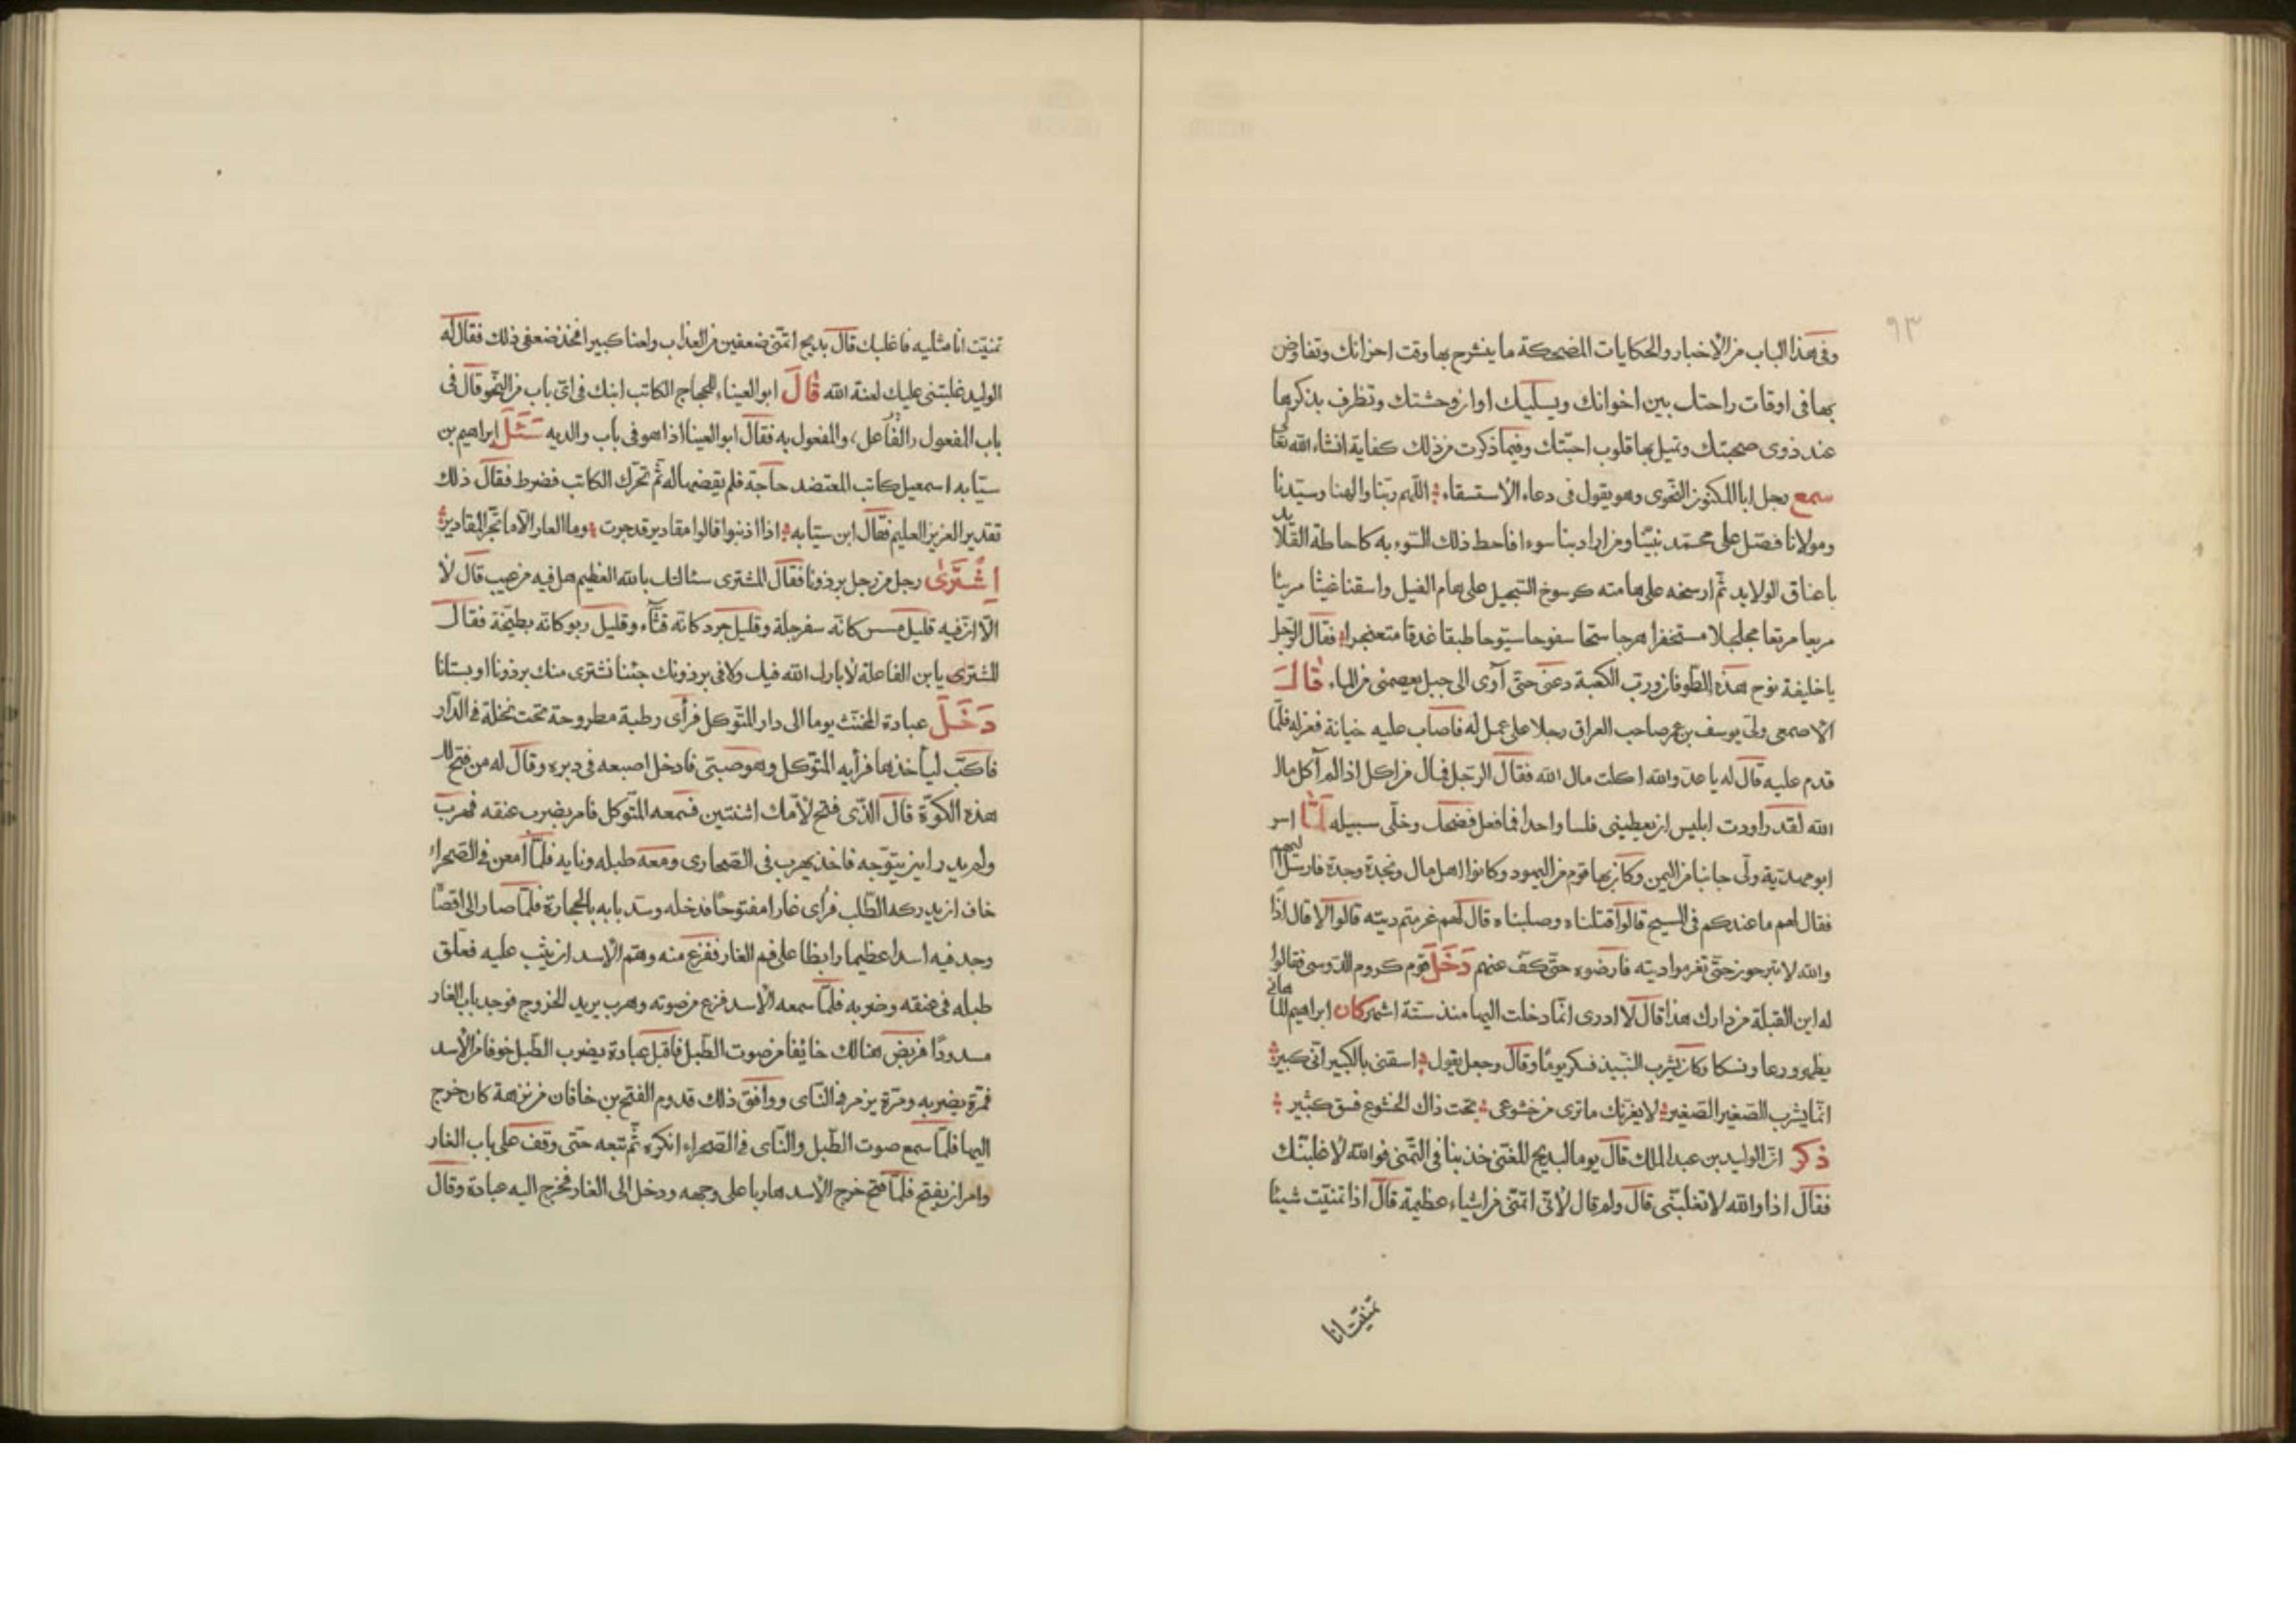 ٩٣
وفى هذا الباب من الاخبار والحكايات المضحكة ما ينشرح بها وقت احزانك وتفاوض
بها فى اوقات راحتك بين اخوانك ويسليك اوان وحشتك وتظرف بذكرها
عند ذوى صحبتك وتميل بها قلوب احبتك وفيما ذكرت من ذلك كفاية انشاء الله تعا
سمع رجل ابا المكنون النحوى وهو يقول فى دعاء الاستسقاء اللهم ربنا والهنا وسيدنا
ومولانا فصل على محمد نبينا ومن اراد بنا سوءا فاحط ذلك السوء به كاحاطة القلايد
باعناق الولايد ثم ارسخه على هامته كرسوخ السجيل على هام الفيل واسقنا غيثا مريئا
مريعا مرتعا مجلجلا مسحنفرا هرجا سحا سفوحا سبوحا طبقا غدقا متعنجرا فقال الرجل
يا خليفة نوح هذه الطوفان ورب الكعبة دعنى حتى آوى الى جبل يعصمنى من الماء قال
الاصمعى ولى يوسف بن عمر صاحب العراق رجلا على عمل له فاصاب عليه خيانة فعزله فلما
قدم عليه قال له يا عدو الله اكلت مال الله فقال الرجل فمال من اكل اذا لم آكل مال
الله لقد راودت ابليس ان يعطينى فلسا واحدا فما فعل فضحك وخلى سبيله لما اسر
ابو مهدية ولى جانبا من اليمن وكان بها قوم من اليهود وكانوا اهل مال ونجدة وجدة فارسل اليهم
فقال لهم ما عندكم فى المسيح قالوا قتلناه وصلبناه قال لهم غرمتم ديته قالوا لا قال اذا
والله لا تبرحون حتى تغرموا ديته فارضوه حتى كف عنهم دخل قوم كروم السدوسى فقالوا
له اين القبلة من دارك هذا قال لا ادرى انما دخلت اليها منذ ستة اشهر كان ابراهيم المامانى
يظهر ورعا ونسكا وكان يشرب النبيذ فسكر يوما وقال وجعل يقول اسقنى بالكبير انى كبير
انما يشرب الصغير الصغير لا يغرنك ما ترى من خشوعى تحت ذاك الخشوع فسق كثير
ذكر ان الوليد بن عبد الملك قال يوما لبديح المغنى خذ بنا فى التمنى فوالله لاغلبنك
فقال اذا والله لا تغلبنى قال ولم قال لانى اتمنى من اشياء عظيمة قال اذا تمنيت شيئا
تمنيت انا
تمنيت انا مثليه فاغلبك قال بديح اتمنى ضعفين من العذاب ولعنا كبيرا فخذ ضعفى ذلك فقال له
الوليد غلبتنى عليك لعنة الله قال ابو العيناء للحجاج الكاتب ابنك فى اى باب من النحو قال فى
باب المفعول والفاعل، والمفعول به فقال ابو العينا اذا هو فى باب والديه سئل ابراهيم بن
سيابه اسمعيل كاتب المعتضد حاجة فلم يقضها له ثم تحرك الكاتب فضرط فقال ذلك
تقدير العزيز العليم فقال ابن سيابه اذا اذنبوا قالوا مقادير قدجرت وما العار الا ما تجر المقادير
اشترى رجل من رجل برذونا فقال المشترى سئالتك بالله العظيم هل فيه من عيب قال لا
الا ان فيه قليل مسس كانه سفرجلة وقليل جرد كانه قثاء وقليل ربو كانه بطيخة فقال
المشترى يا بن الفاعلة لا بارك الله فيك ولا فى برذونك جئنا نشترى منك برذونا او بستانا
دخل عبادة المخنث يوما الى دار المتوكل فرأى رطبة مطروحة تحت نخلة فى الدار
فاكب ليأخذها فرأيه المتوكل وهو صبى فادخل اصبعه فى دبره وقال له من فتح لك
هذه الكوة قال الذى فتح لامك اثنتين فسمعه المتوكل فامر بضرب عنقه فهرب
ولم يدر اين يتوجه فاخذ يهرب فى الصحارى ومعه طبله ونايه فلما امعن فى الصحراء
خاف ان يدركه الطلب فرأى غارا مفتوحا فدخله وسد بابه بالحجارة فلما صار الى اقصا
وجد فيه اسدا عظيما رابظا على فم الغار ففزع منه وهم الاسد ان يثب عليه فعلق
طبله فى عنقه وضربه فلما سمعه الاسد فزع من صوته وهرب يريد الخروج فوجد باب الغار
مسدودا فربض هنالك خايفا من صوت الطبل فاقبل عبادة يضرب الطبل خوفا من الاسد
فمرة يضربه ومرة يزمر فى الناى ووافق ذلك قدوم الفتح بن خاقان من نزهة كان خرج
اليها فلما سمع صوت الطبل والناى فى الصحراء انكره ثم تتبعه حتى وقف على باب الغار
وامر ان يفتح فلما فتح خرج الاسد هاربا على وجهه ودخل الى الغار فخرج اليه عبادة وقال